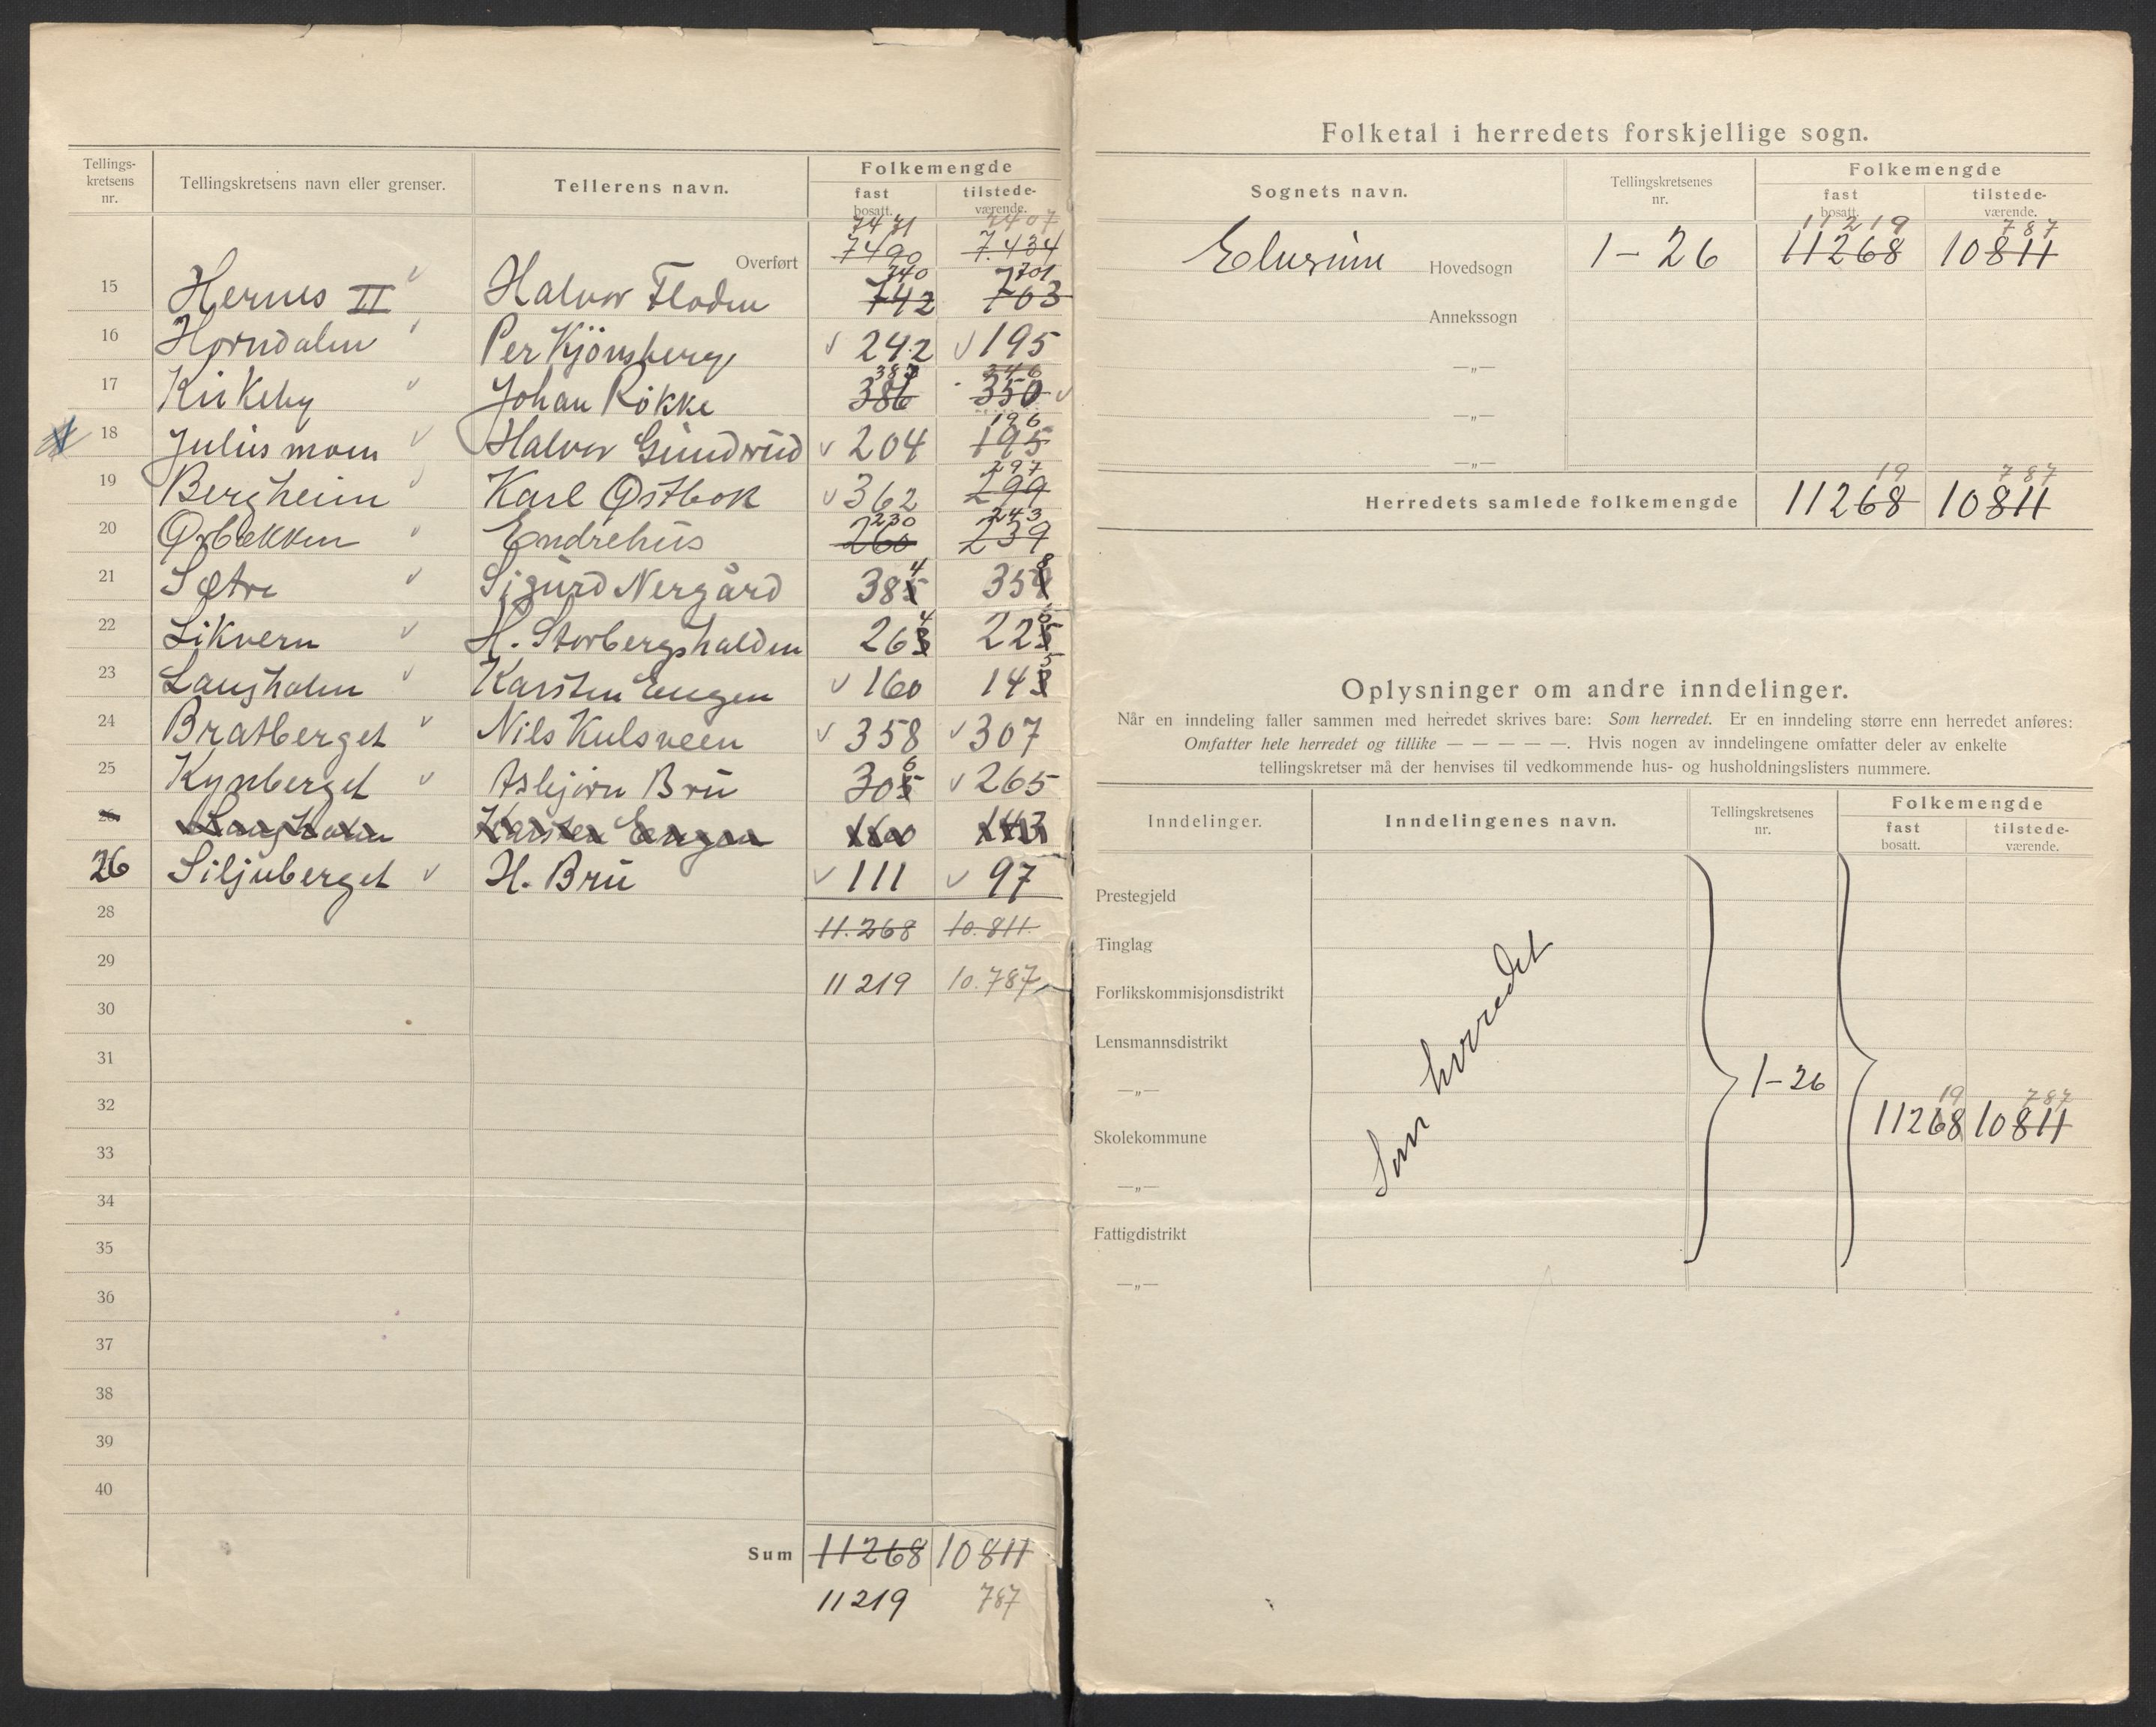 Tellings-
kretsens
nr.
Tellingskretsens navn eller grenser.
Tellerens navn.
Folkemengde
fast
bosatt.
tilstede-
værende.
7471 7407
Overført 7490 7.434
740 701
15 Hernes II Halvor Floden 742 703
16 Horndalen Per Kjönsberg 242 195
387 346
17 Kirkeby Johan Rökke 386 350
196
18 Julusmoen Halvor Gundrud 204 195
297
19 Bergheim Karl Østbok 362 299
230 243
20 Ørbekken Endrehus 260 239
4 8
21 Sætre Sigurd Nergård 385 354
4 6
22 Likvern H. Storbergshalden 263 225
5
23 Langholen Karsten Engen 160 143
24 Bratberget Nils Kulsveen 358 307
6
25 Kynberget Asbjørn Bru 305 265
26 Langholen Karsten Engen 160 143
26 Siljuberget H. Bru 111 97
28 11.268 10.811
29 11219 10.787
30
31
32
33
34
35
36
37
38
39
40
Sum 11268 10811
11219 787
Folketal i herredets forskjellige sogn.
Sognets navn.
Tellingskretsenes
nr.
Folkemengde
fast
bosatt.
tilstede-
værende.
11219 787
Elverum Hovedsogn 1-26 11268 10811
Annekssogn
—„—
—„—
—„—
19 787
Herredets samlede folkemengde 11268 10811
Oplysninger om andre inndelinger.
Når en inndeling faller sammen med herredet skrives bare: Som herredet. Er en inndeling større enn herredet anføres:
Omfatter hele herredet og tillike — — — — —. Hvis nogen av inndelingene omfatter deler av enkelte
tellingskretser må der henvises til vedkommende hus- og husholdningslisters nummere.
Inndelinger.
Inndelingenes navn.
Tellingskretsenes
nr.
Folkemengde
fast
bosatt.
tilstede-
værende.
Prestegjeld
Tinglag
Forlikskommisjonsdistrikt
Lensmannsdistrikt
—„—
Skolekommune
—„—
Fattigdistrikt
—„—
Som herredet
1-26
19 787
11268 10811